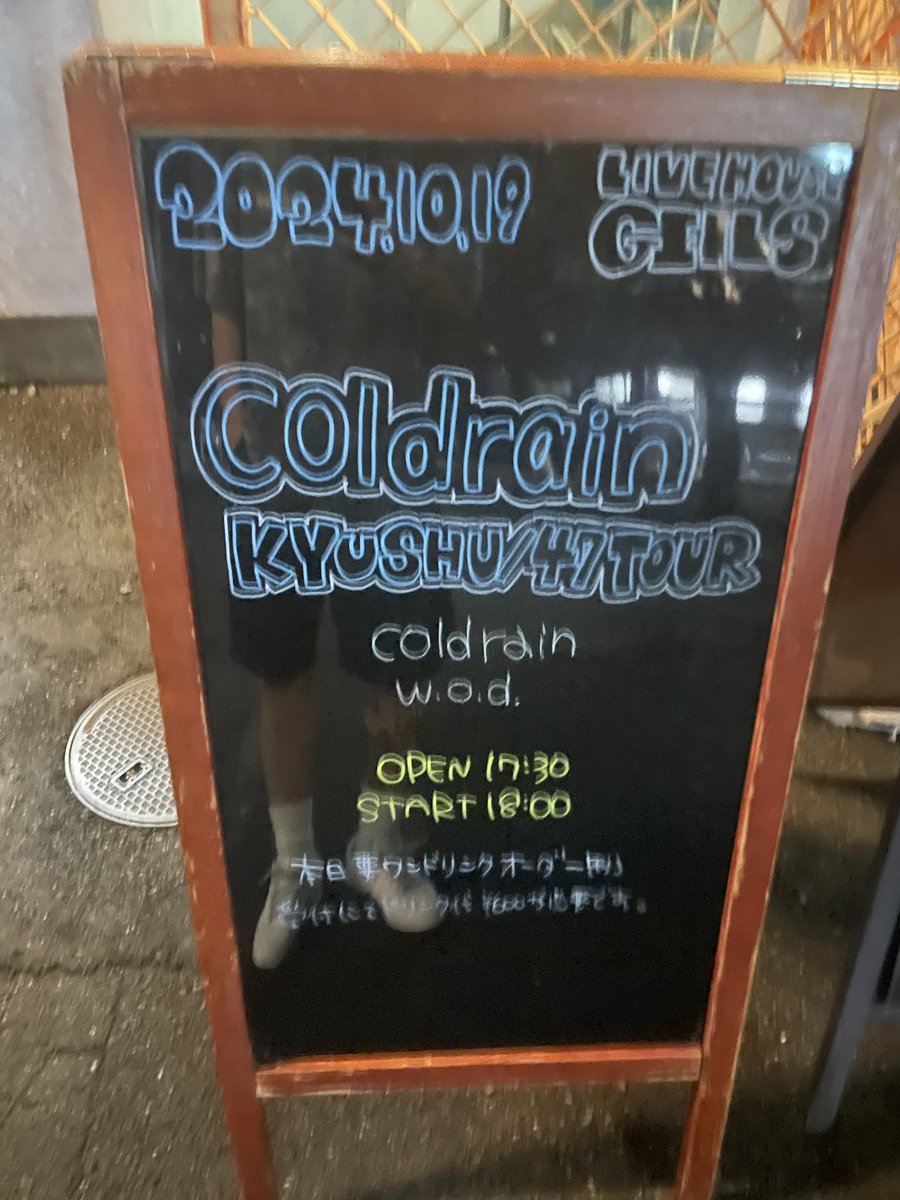 2024.10.19
LIVEHOUSE
GEILS
Coldrain
KYUSHU/47TOUR
coldrain
w.o.d.
OPEN 17:30
START 18:00
本日要ワンドリンクオーダー制
受付にてドリンク代 ¥600が必要です。